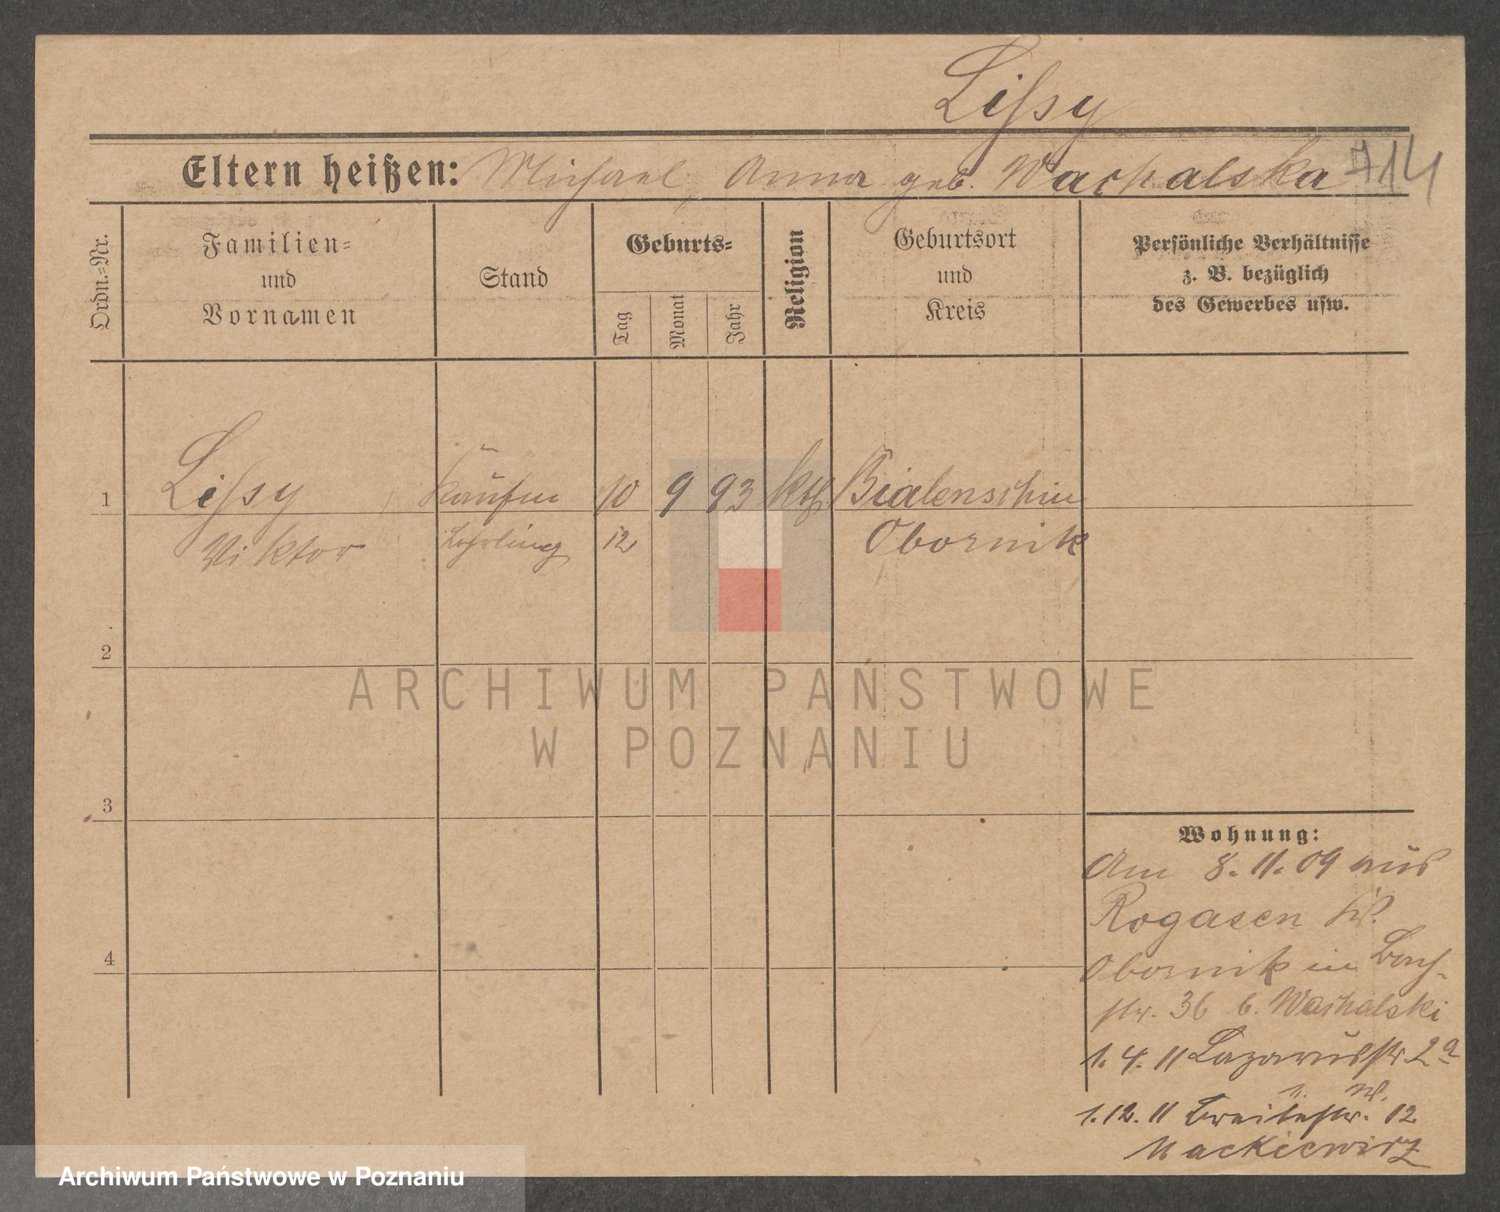 Lissy
Eltern heißen: Michael, Anna geb. Wachalska
714
Ordn.=Nr.
Familien=
und
Vornamen
Stand
Geburts=
Tag
Monat
Jahr
Religion
Geburtsort
und
Kreis
Persönliche Verhältnisse
z. B. bezüglich
des Gewerbes usw.
1 Lissy 10 9 93 kth Bialenschin
Viktor Lehrling 12 Obornik
2
ARCHIWUM PAŃSTWOWE
W POZNANIU
3
Wohnung:
Am 8.11.09 aus
Rogasen
4
Obornik in Bach-
str. 36 b. Wachalski
1.4.11 Lazarusstr. 2a
1.12.11 Breitestr. 12
Mackiewicz
Archiwum Państwowe w Poznaniu